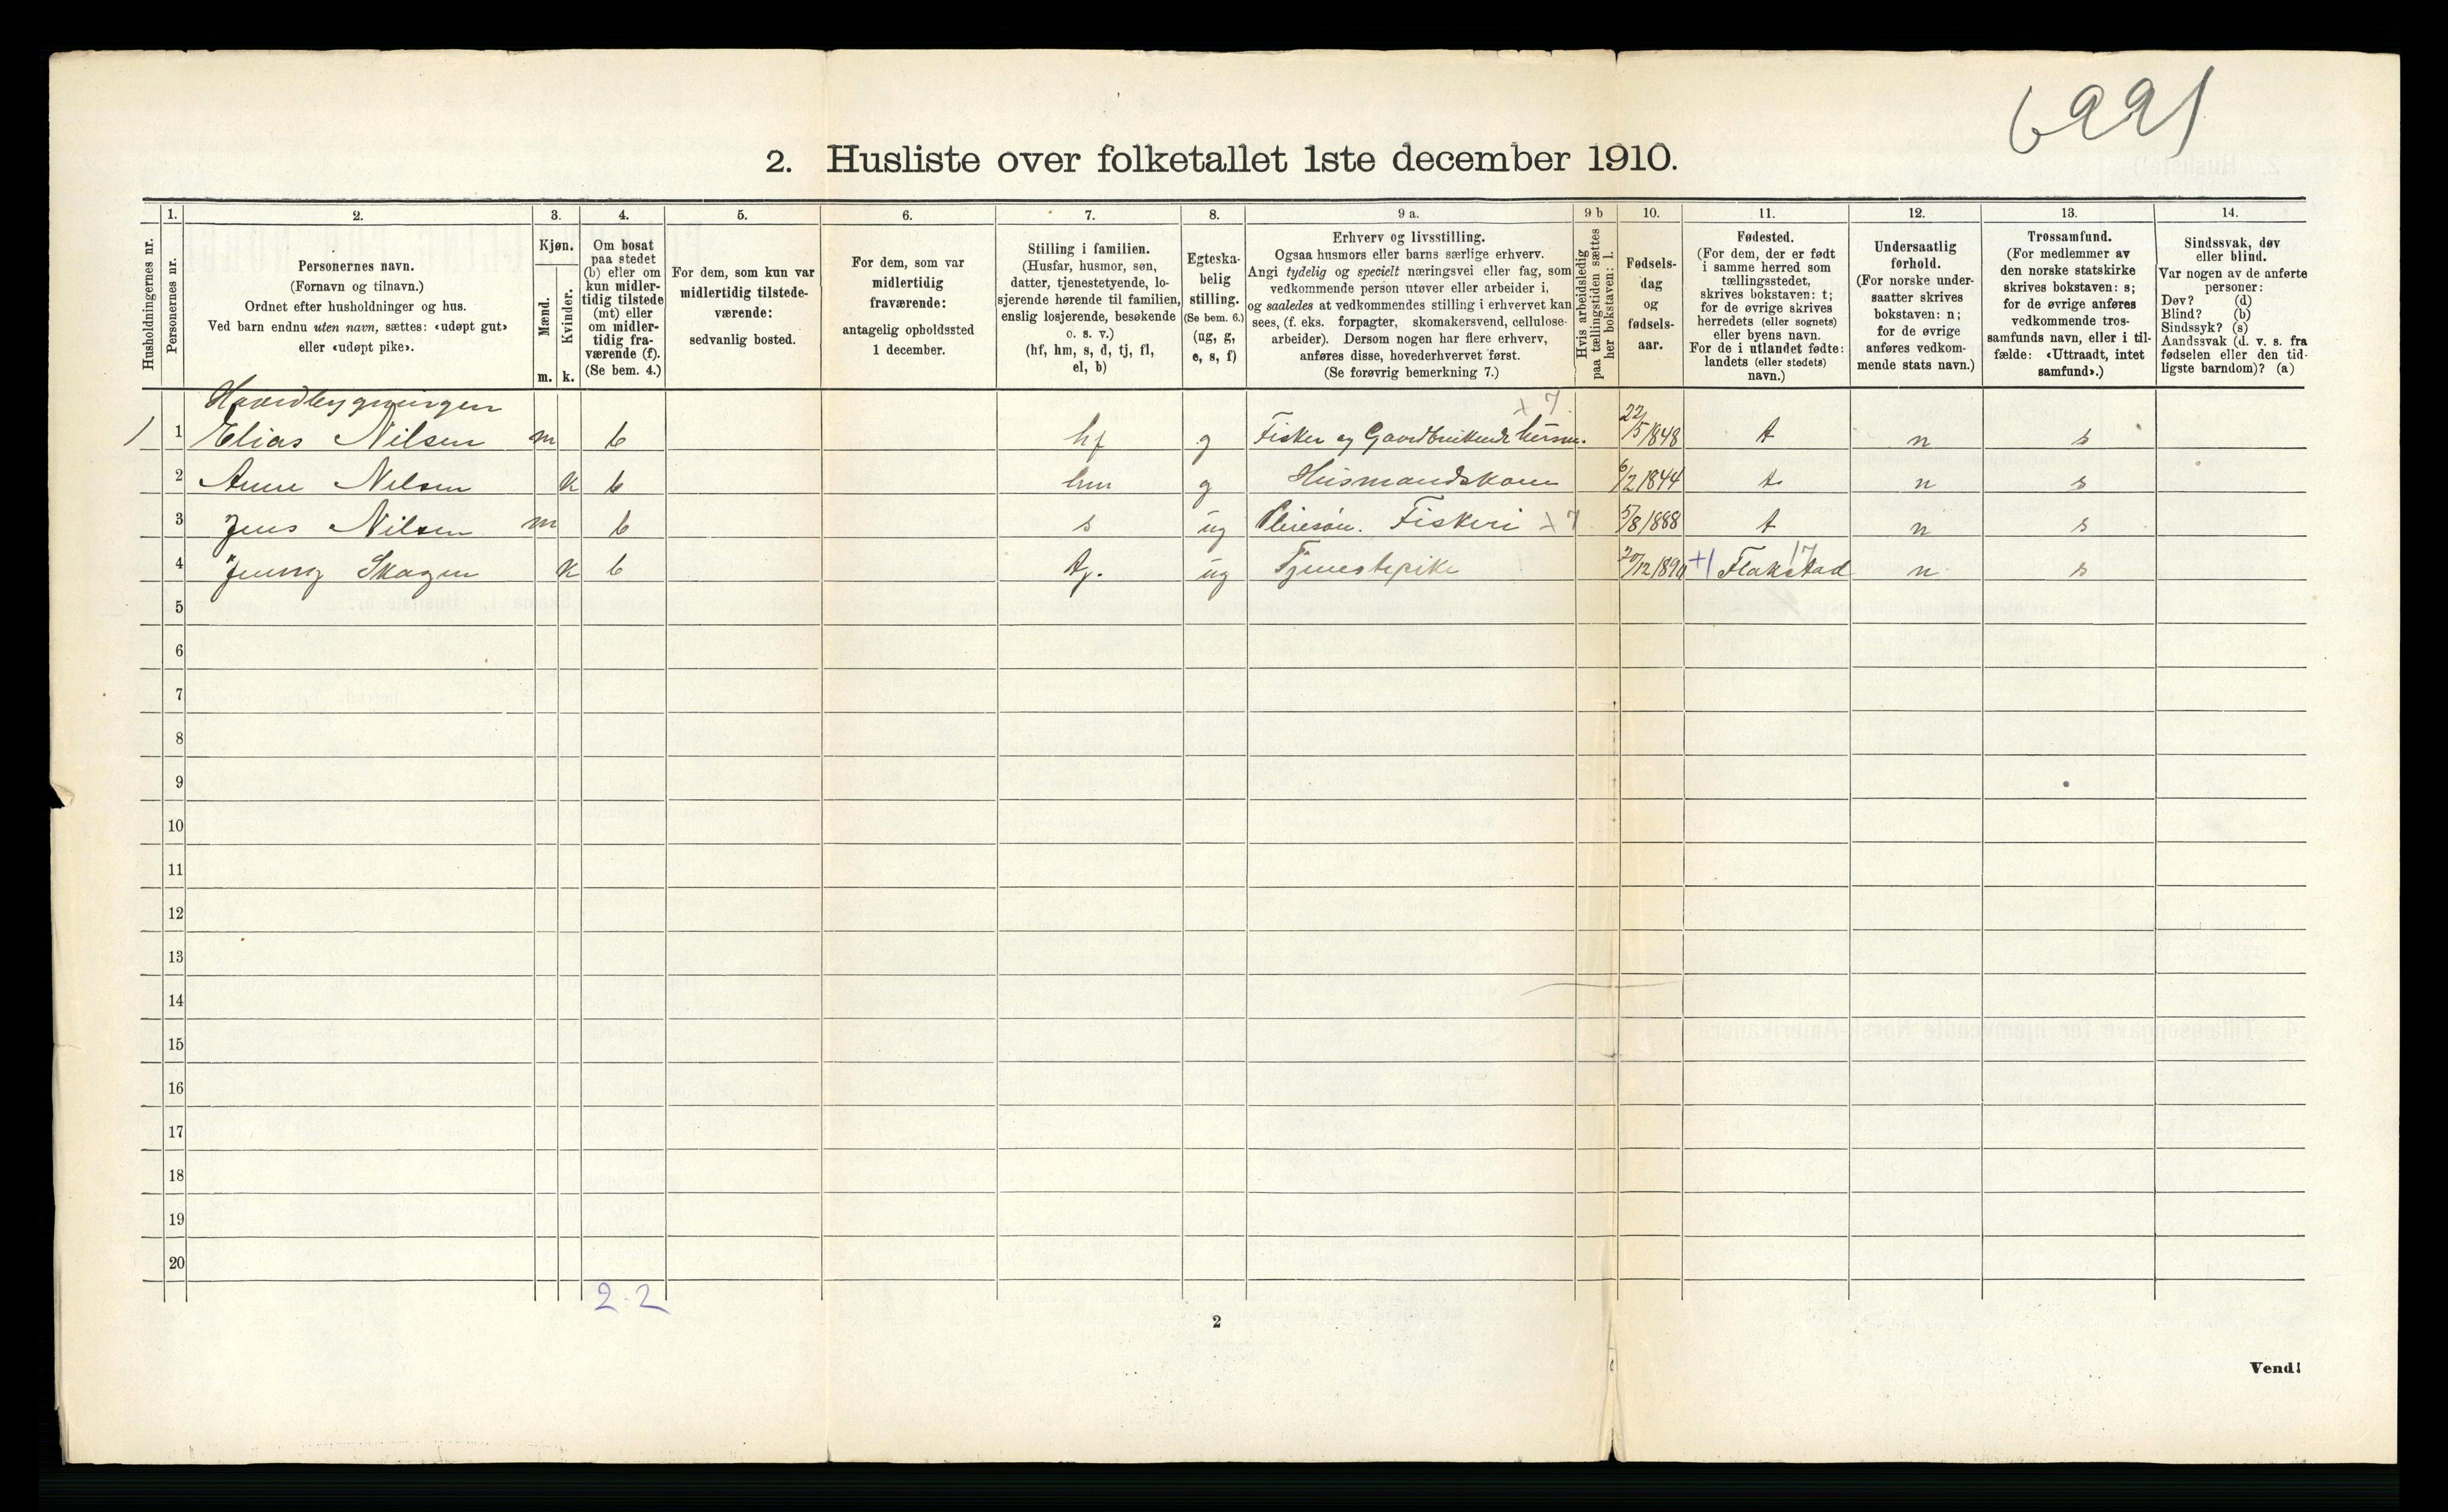 6991
2. Husliste over folketallet 1ste december 1910.
Husholdningernes nr.
1.
Personernes nr.
2.
Personernes navn.
(Fornavn og tilnavn.)
Ordnet efter husholdninger og hus.
Ved barn endnu uten navn, sættes: «udøpt gut»
eller «udøpt pike».
3.
Kjøn.
Mænd.
Kvinder.
m. k.
4.
Om bosat
paa stedet
(b) eller om
kun midler-
tidig tilstede
(mt) eller
om midler-
tidig fra-
værende (f).
(Se bem. 4.)
5.
For dem, som kun var
midlertidig tilstede-
værende:
sedvanlig bosted.
6.
For dem, som var
midlertidig
fraværende:
antagelig opholdssted
1 december.
7.
Stilling i familien.
(Husfar, husmor, søn,
datter, tjenestetyende, lo-
sjerende hørende til familien,
enslig losjerende, besøkende
o. s. v.)
(hf, hm, s, d, tj, fl,
el, b)
8.
Egteska-
belig
stilling.
(Se bem. 6.)
(ug, g,
e, s, f)
9 a.
Erhverv og livsstilling.
Ogsaa husmors eller barns særlige erhverv.
Angi tydelig og specielt næringsvei eller fag, som
vedkommende person utøver eller arbeider i,
og saaledes at vedkommendes stilling i erhvervet kan
sees, (f. eks. forpagter, skomakersvend, cellulose-
arbeider). Dersom nogen har flere erhverv,
anføres disse, hovederhvervet først.
(Se forøvrig bemerkning 7.)
9 b
Hvis arbeidsledig
paa tællingstiden sættes
her bokstaven: l.
10.
Fødsels-
dag
og
fødsels-
aar.
11.
Fødested.
(For dem, der er født
i samme herred som
tællingsstedet,
skrives bokstaven: t;
for de øvrige skrives
herredets (eller sognets)
eller byens navn.
For de i utlandet fødte:
landets (eller stedets)
navn.)
12.
Undersaatlig
forhold.
(For norske under-
saatter skrives
bokstaven: n;
for de øvrige
anføres vedkom-
mende stats navn.)
13.
Trossamfund.
(For medlemmer av
den norske statskirke
skrives bokstaven: s;
for de øvrige anføres
vedkommende tros-
samfunds navn, eller i til-
fælde: «Uttraadt, intet
samfund».)
14.
Sindssvak, døv
eller blind.
Var nogen av de anførte
personer:
Døv? (d)
Blind? (b)
Sindssyk? (s)
Aandssvak (d. v. s. fra
fødselen eller den tid-
ligste barndom)? (a)
Hovedbygningen x 7.
1 1 Elias Nilsen m b hf g Fisker og Gaardbrukende husm. 22/5 1848 t n s
2 Anne Nilsen k b hm g Husmandskone 6/2 1844 t n s
3 Jens Nilsen m b s ug Fiskeri x 7 5/8 1888 t n s
4 Jenny Skagen k b tj. ug Tjenestepike 20/12 1890 +1 Flakstad 17 n s
5
6
7
8
9
10
11
12
13
14
15
16
17
18
19
20
2-2
2
Vend!